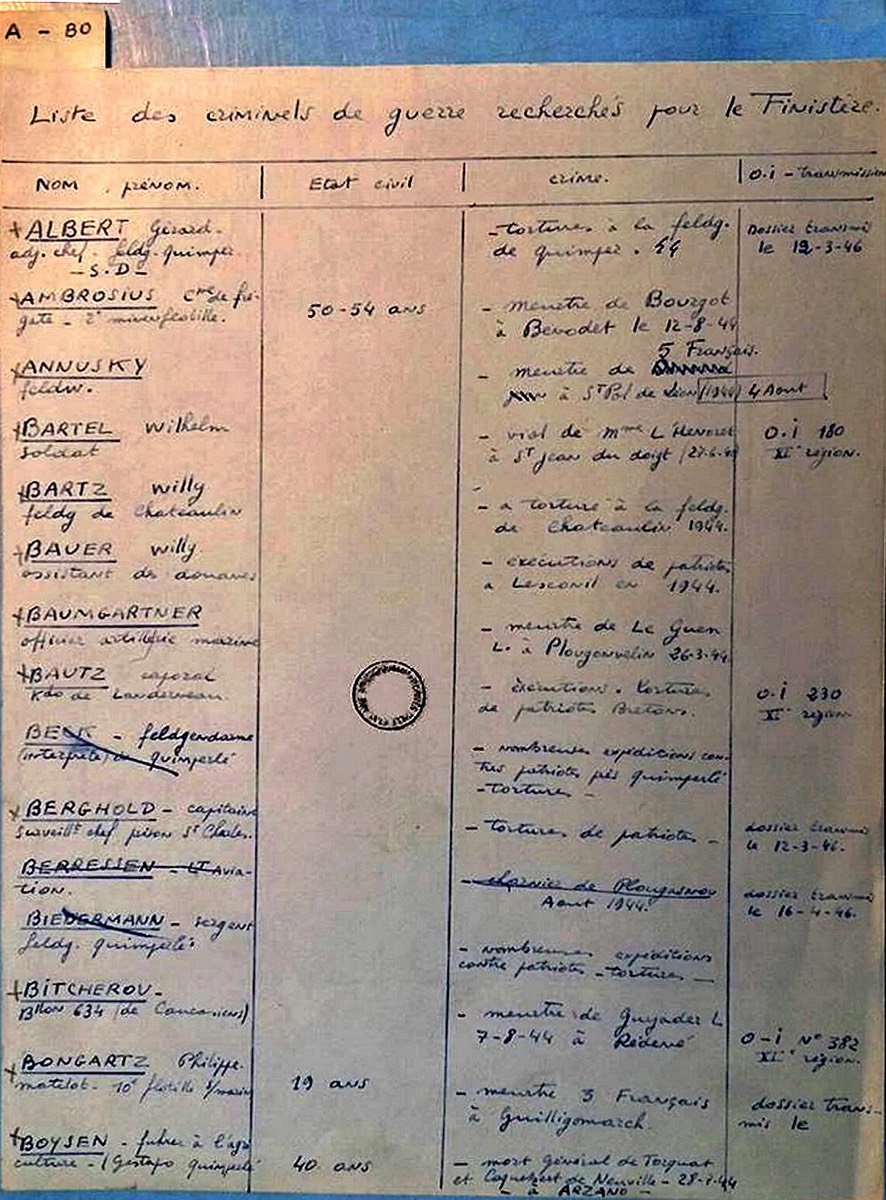 A - 80
Liste des criminels de guerre recherchés pour le Finistère.
NOM . prénom. | Etat civil | crime. | O.i - transmission
+ALBERT Gérard - -tortures à la feldg. Dossier transmis
adj. chef. feldg. quimper. de quimper. 44 le 12-3-46
- S.D -
+AMBROSIUS Cne de fré- 50-54 ans - meurtre de Bourgot
gate - 2e minenflotille. à Benodet le 12-8-44
5 Français.
+ANNUSKY - meurtre de
feldw. à St Pol de Léon (1944) 4 Aout
+BARTEL Wilhelm - viol de Mme L'Henoret O.i 180
soldat à St Jean du doigt XIe région.
+BARTZ Willy - a torturé à la feldg.
feldg de Chateaulin de Chateaulin 1944.
+BAUER Willy - exécutions de patriotes
assistant des douanes à Lesconil en 1944.
+BAUMGARTNER - meurtre de Le Guen
officier artillerie marine L. à Plougonvelin 26-3-44.
+BAUTZ caporal - exécutions. tortures O.i 230
Kdo de Landerneau. de patriotes Bretons. XIe région
BENK - feldgendarme - nombreuses expéditions con-
(interprète) de quimperlé tres patriotes près quimperlé
- tortures -
+BERGHOLD - capitaine - tortures de patriotes - dossier transmis
surveillt chef prison St Charles. le 12-3-46.
BERRESSEN - LT Avia- - charnier de Plougasnou dossier transmis
tion. Aout 1944. le 16-4-46.
BIEDERMANN - sergent - nombreuses expéditions
feldg. quimperlé contre patriotes - tortures -
+BITCHEROV - - meurtre de Guyader L O-i N° 382
Bllon 634 (de Caucasiens) 7-8-44 à Rédené XIe région.
+BONGARTZ Philippe. 19 ans - meurtre 3 Français dossier trans-
matelot. 10e flotille s/marins à Guilligomarch. mis le
+BOYSEN - fuhrer à l'agri 40 ans - mort général de Torquat
culture - (Gestapo quimperlé et Coquebert de Neuville -
- à ARZANO -